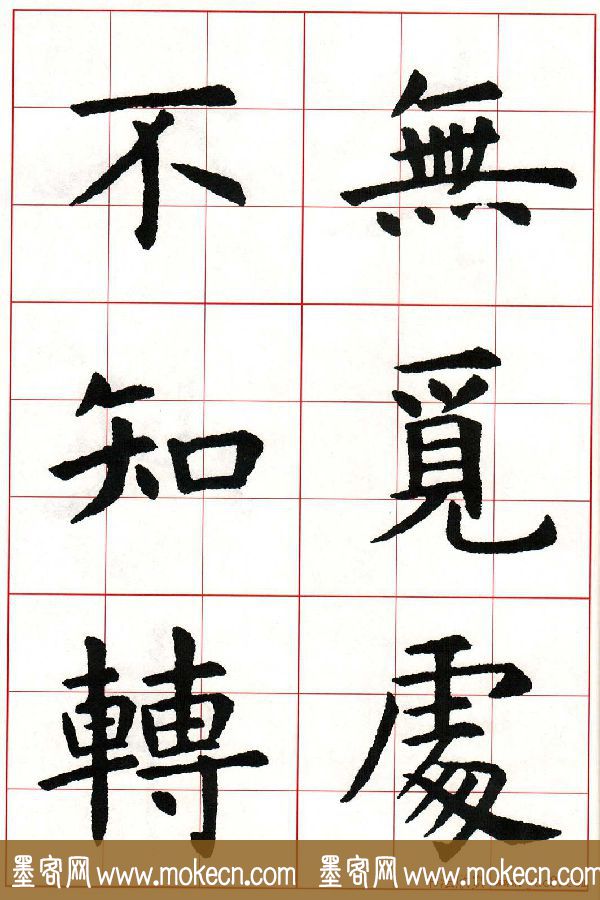 無覓處
不知轉
墨客网 www.mokecn.com 墨客网 www.mokecn.com